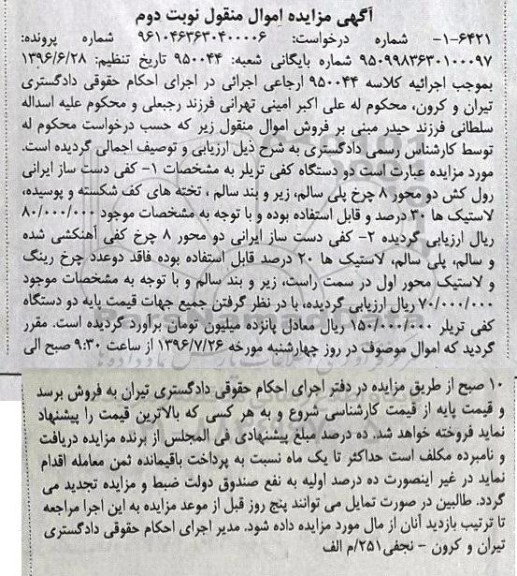 آگهی مزایده اموال منقول نوبت دوم
۱-۶۴۲۱- شماره درخواست: ۹۶۱۰۴۶۳۶۳۰۴۰۰۰۰۶ شماره پرونده:
۹۵۰۹۹۸۳۶۳۰۱۰۰۰۹۷ شماره بایگانی شعبه: ۹۵۰۰۴۴ تاریخ تنظیم: ۱۳۹۶/۶/۲۸
بموجب اجرائیه کلاسه ۹۵۰۰۴۴ ارجاعی اجرائی در اجرای احکام حقوقی دادگستری
تیران و کرون، محکوم له علی اکبر امینی تهرانی فرزند رجبعلی و محکوم علیه اسداله
سلطانی فرزند حیدر مبنی بر فروش اموال منقول زیر که حسب درخواست محکوم له
توسط کارشناس رسمی دادگستری به شرح ذیل ارزیابی و توصیف اجمالی گردیده است.
مورد مزایده عبارت است دو دستگاه کفی تریلر به مشخصات ۱- کفی دست ساز ایرانی
رول کش دو محور ۸ چرخ پلی سالم، زیر و بند سالم ، تخته های کف شکسته و پوسیده،
لاستیک ها ۳۰ درصد و قابل استفاده بوده و با توجه به مشخصات موجود ۸۰/۰۰۰/۰۰۰
ریال ارزیابی گردیده ۲- کفی دست ساز ایرانی دو محور ۸ چرخ کفی آهنکشی شده
و سالم، پلی سالم، لاستیک ها ۲۰ درصد قابل استفاده بوده فاقد دوعدد چرخ رینگ
و لاستیک محور اول در سمت راست، زیر و بند سالم و با توجه به مشخصات موجود
۷۰/۰۰۰/۰۰۰ ریال ارزیابی گردیده، با در نظر گرفتن جمیع جهات قیمت پایه دو دستگاه
کفی تریلر ۱۵۰/۰۰۰/۰۰۰ ریال معادل پانزده میلیون تومان برآورد گردیده است. مقرر
گردید که اموال موصوف در روز چهارشنبه مورخه ۱۳۹۶/۷/۲۶ از ساعت ۹:۳۰ صبح الی
۱۰ صبح از طریق مزایده در دفتر اجرای احکام حقوقی دادگستری تیران به فروش برسد
و قیمت پایه از قیمت کارشناسی شروع و به هر کسی که بالاترین قیمت را پیشنهاد
نماید فروخته خواهد شد. ده درصد مبلغ پیشنهادی فی المجلس از برنده مزایده دریافت
و نامبرده مکلف است حداکثر تا یک ماه نسبت به پرداخت باقیمانده ثمن معامله اقدام
نماید در غیر اینصورت ده درصد اولیه به نفع صندوق دولت ضبط و مزایده تجدید می
گردد. طالبین در صورت تمایل می توانند پنج روز قبل از موعد مزایده به این اجرا مراجعه
تا ترتیب بازدید آنان از مال مورد مزایده داده شود. مدیر اجرای احکام حقوقی دادگستری
تیران و کرون - نجفی ۲۵۱/م الف